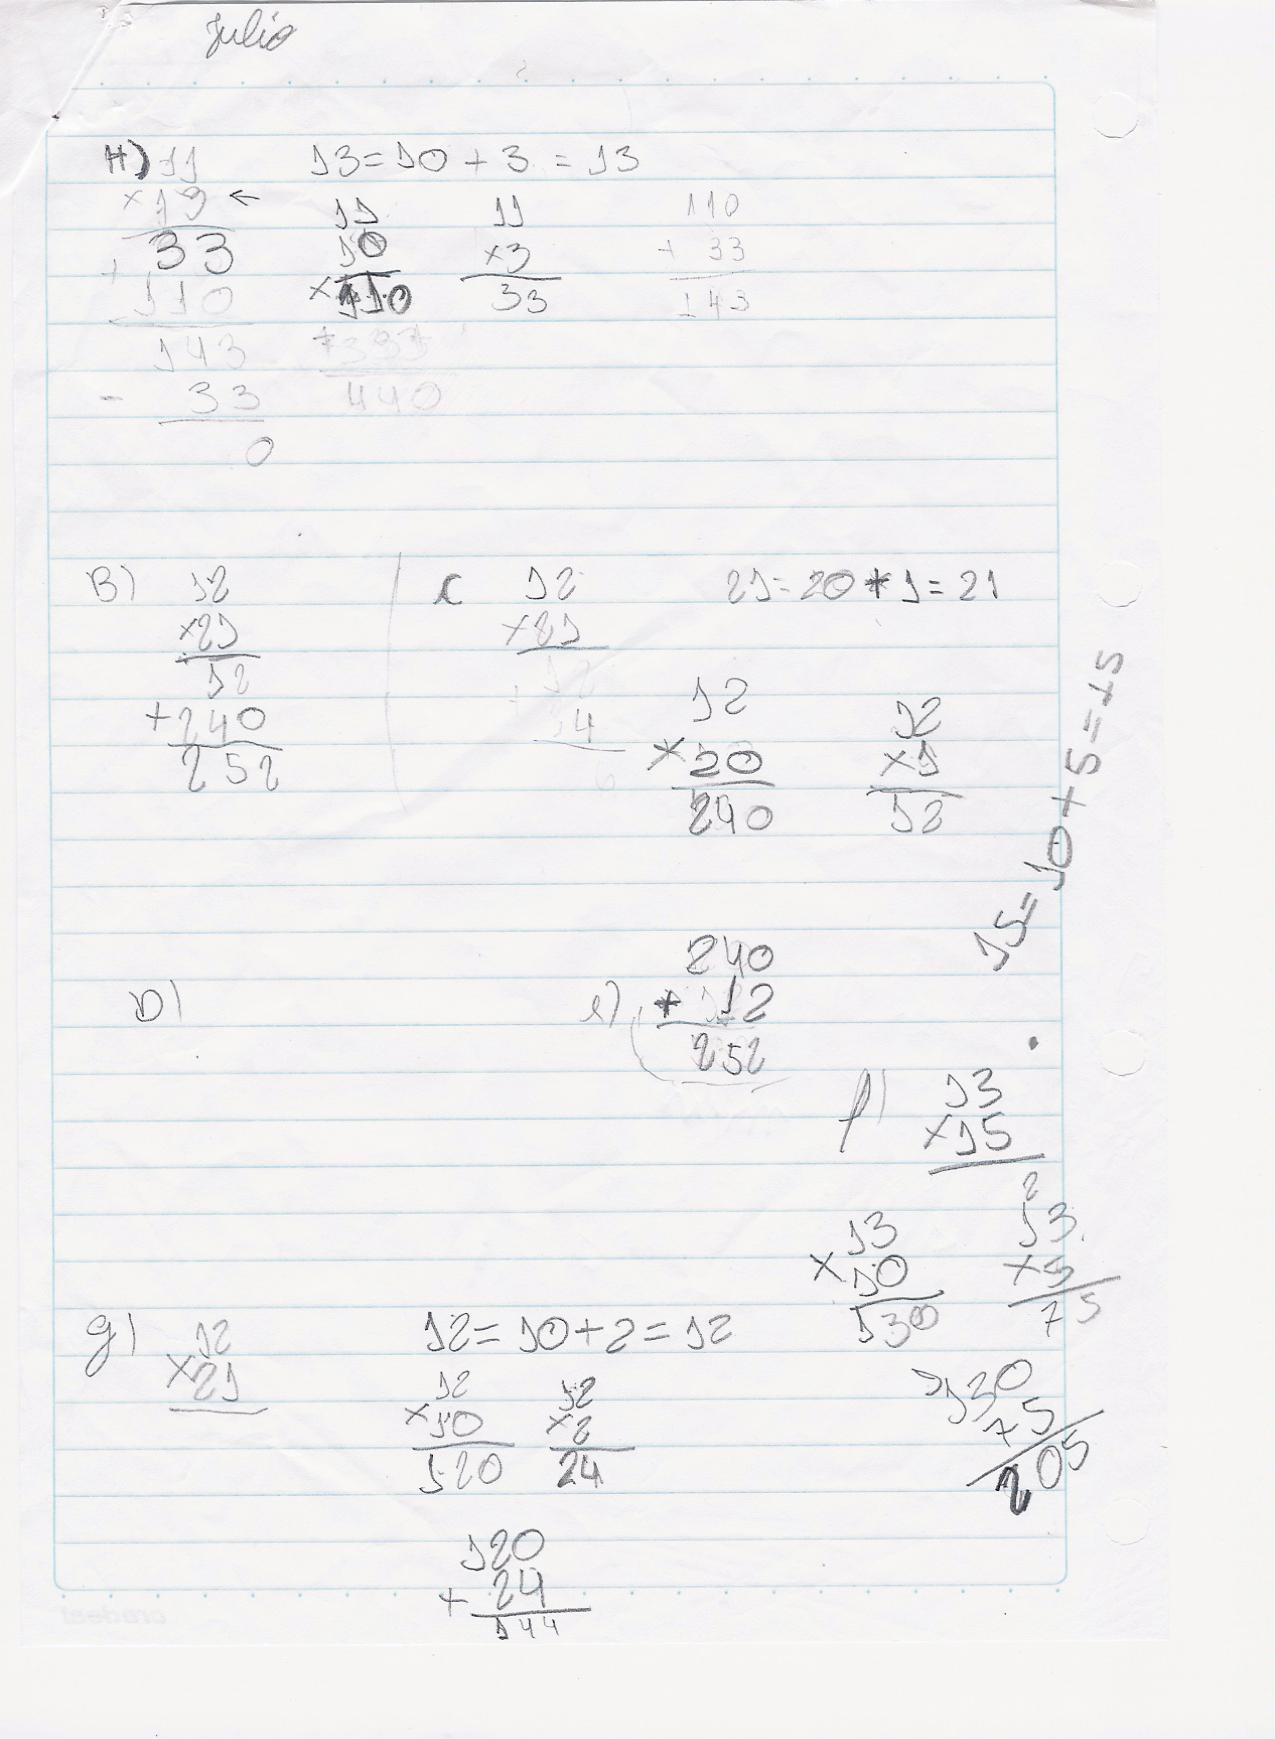 Julio
H) 11 13=10+3=13
×13 ←
33
+
110
143
- 33
0
11
10
×110
+333
440
11
×3
33
110
+ 33
143
B) 12
×21
12
+240
252
c 12
×21
12
+
24
6
21=20+1=21
12
×20
240
12
×1
12
15=10+5=15
D)
e) 240
+ 12
252
f) 13
×15
13
×10
130
2
13
×5
75
130
75
205
g) 12
×21
12=10+2=12
12
×10
120
12
×2
24
120
+ 24
144
credeal